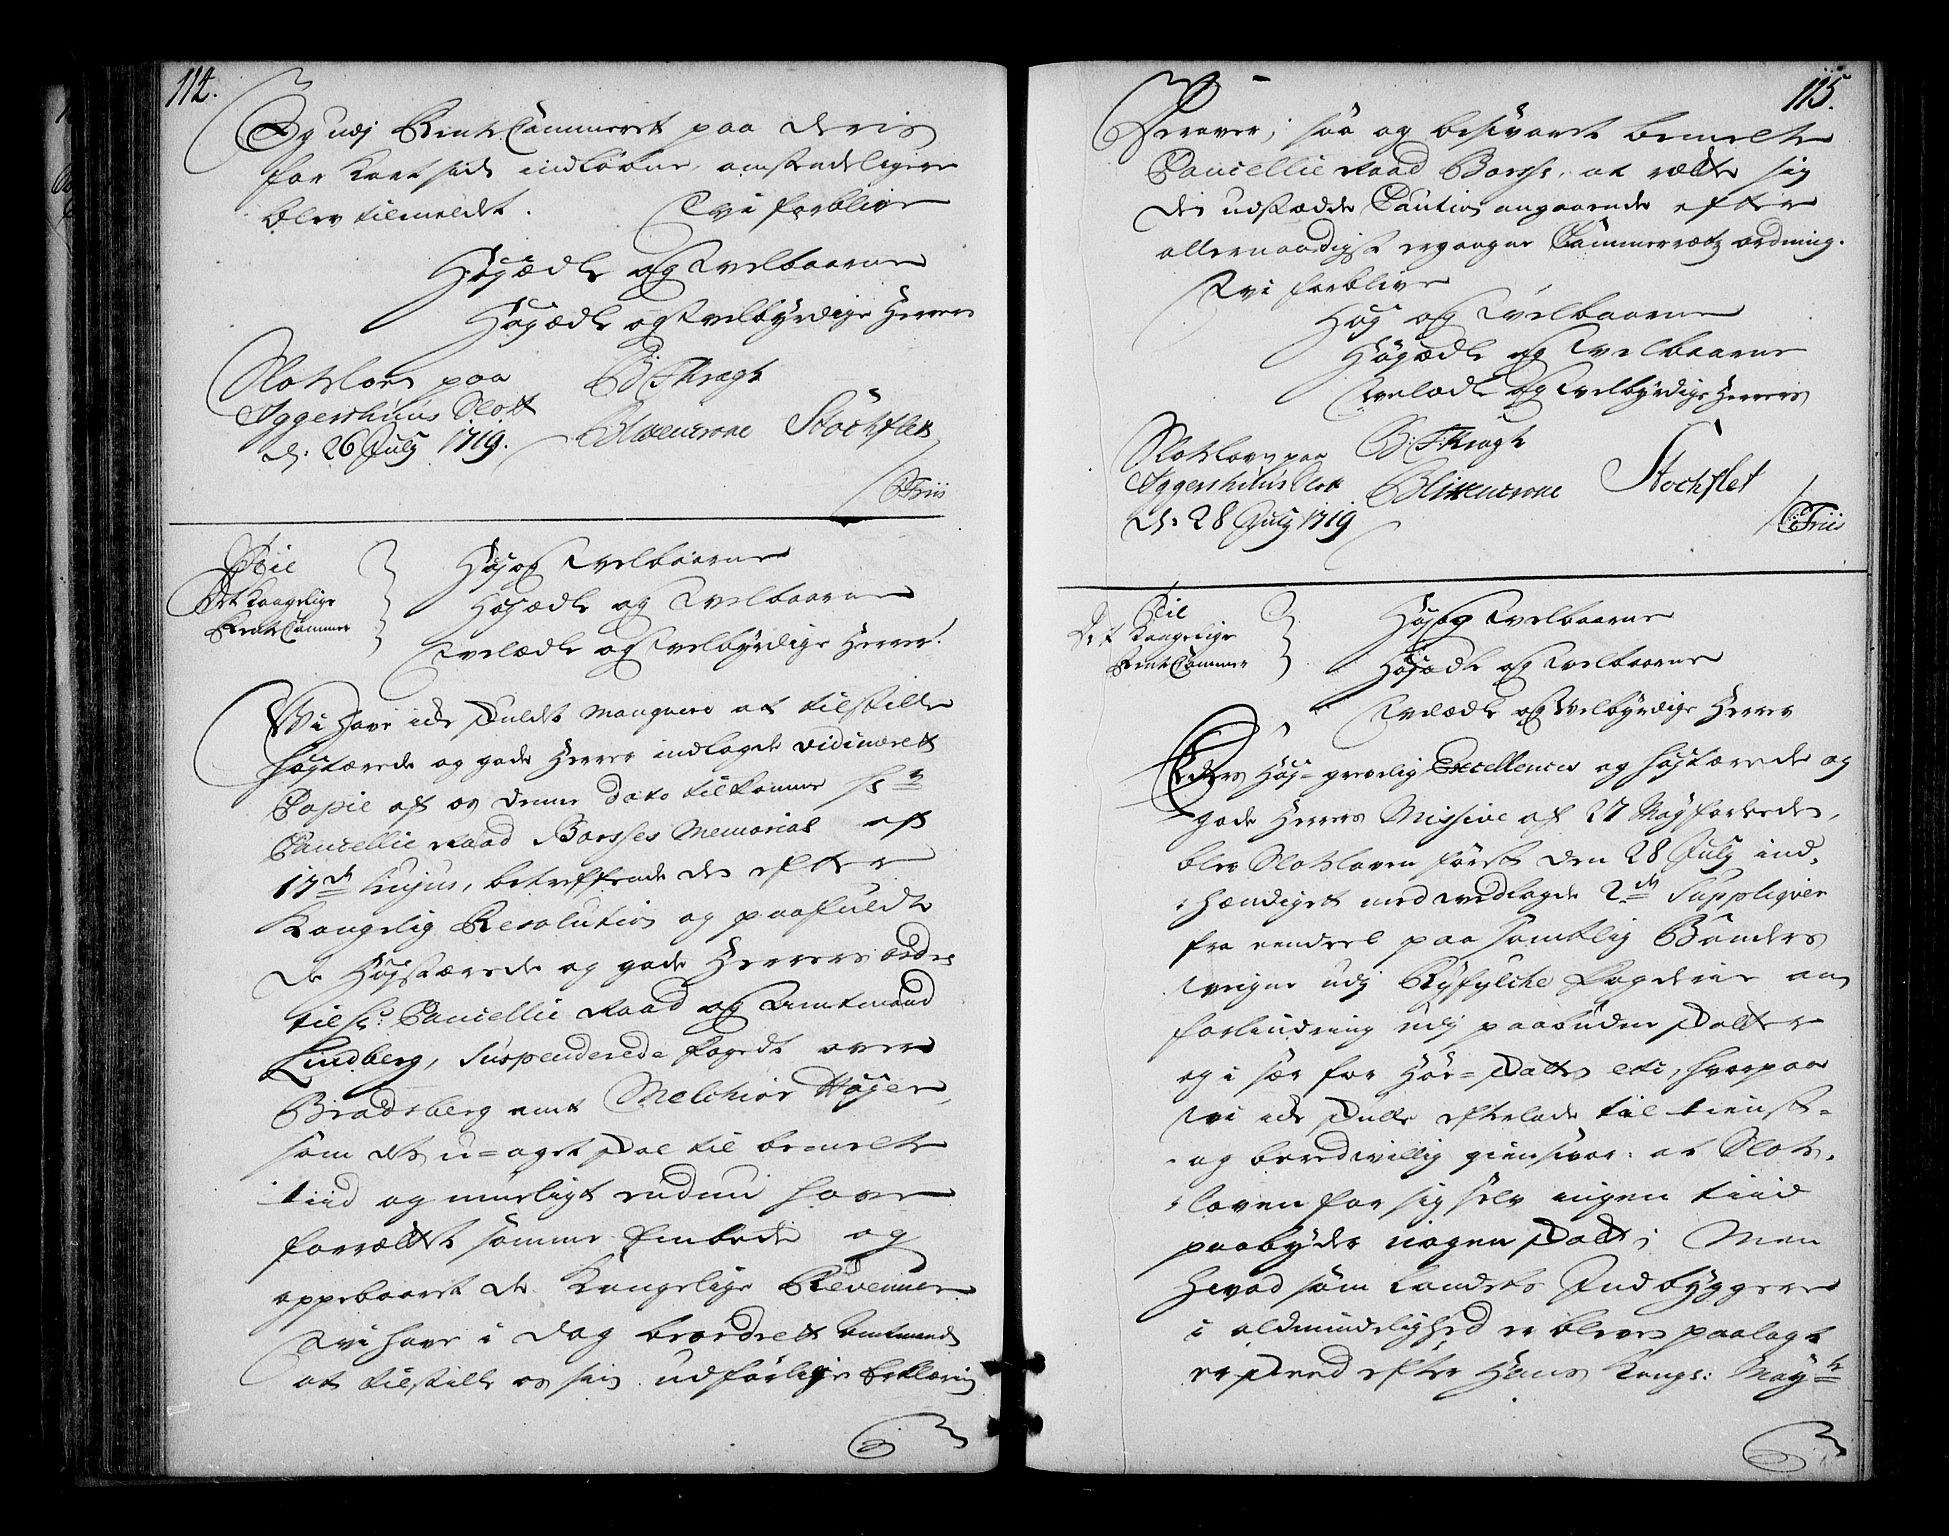 114.
Og udj Rente Cammeret paa deris
for kort siden indkomne, omstendeligere
blev tilmeldet. Vi forblive
Høyædle og Velbaarne
Høgædle og Velbyrdige Herrers
Slotsloven paa
Aggershuus Slott
d: 26 July 1719.
B F Kragh
Blixencrone Stochflet
/CFriis
Til
Det Kongelige
Rente Cammer
Høy og Velbaarne
Høyædle og Velbaarne
Velædle og Velbyrdige Herrer.
Vi have iche skuldt manqvere at tilstille
høystærede og gode Herrer indlagde vidimeret
Copie af os denne dato tilkomne Hr
Cancellie Raad Borsses Memorial af
17de hujus, betreffende de efter
Kongelig Resolution og paafuldte
de Høystærede og gode Herrers ordre
til Hr: Cancellie Raad og Amtmand
Lindberg, suspenderede fogedt over
Bradsberg amt Melchior Høyer,
som dette u-aget skal til bemelte
tiid og muligt endnu have
forrættet samme Embede og
oppebaaret de Kongelige Revenuer
Vi have i dag beordret Amtmand
at tilstille os sin udførlige Erklæring
115.
Herover, saa og besvaret bemelte
Cancellie Raad Borsse, at rætte sig
den udstædde Caution angaaende efter
allernaadigst ergangne Cammerrætz ordning.
Vi forblive
Høy og Velbaarne
Høyædle og Velbaarne
Velædle og Velbyrdige Herrers
Slotsloven paa
Aggershuus Slott
d: 28 July 1719
B: F: Kragh
Blixencrone Stochflet
/CFriis
Til
Det Kongelige
Rente Cammer
Høy og Velbaarne
Høyædle og Velbaarne
Velædle og Velbyrdige Herrer
Eders Høy-grevelig Excellences og høystærede og
gode Herrers Missive af 27 May forleden,
blev Slotsloven først den 28 July ind-
hændiget med vedlagde 2de Suppliqver
fra eendeel paa samtlig Bønders
vegne udj Ryfylche fogderie om
forlindring udj paabudne Skatter
og i sær for Hör-Skatten etc, hvorpaa
vi iche skulle efterlade til tienst-
og beredwillig giensvar: at Slots-
loven for sig selv ingen tiid
paabyder nogen Skatt; Men
hvad som Landets Indbyggere
i aldmindelighed er bleven paalagt
er skeed efter Hans Kongs: Mayts